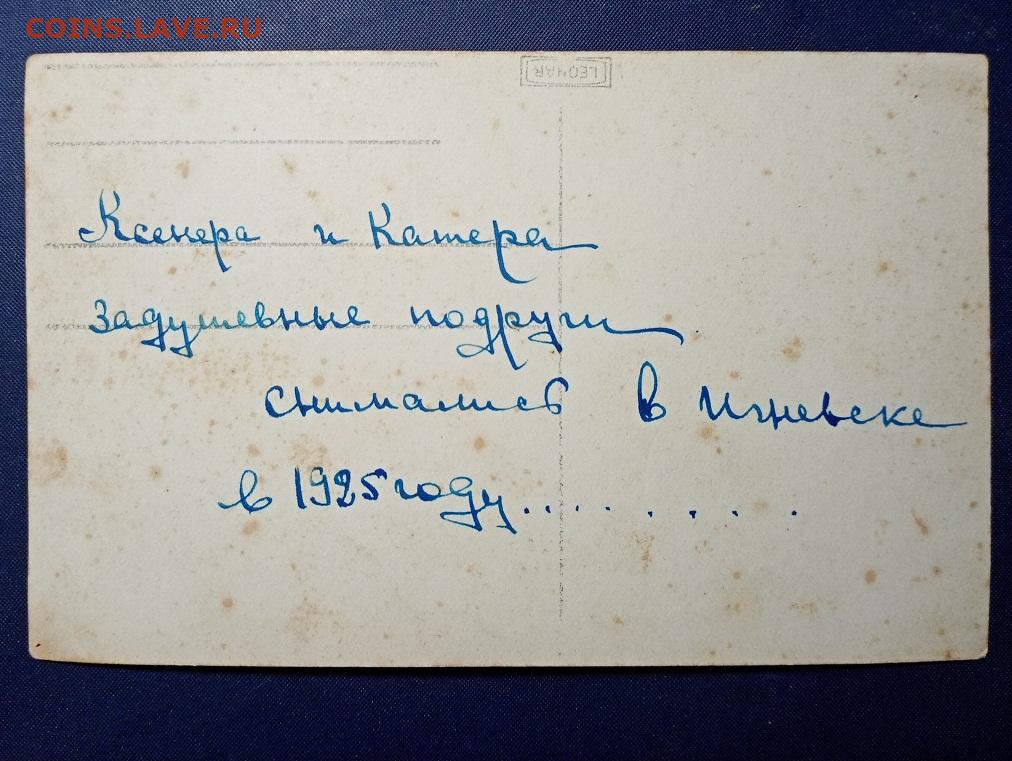 COINS.LAVE.RU
LEONAR
Ксенера и Катера
задушевные подруги
снимались в Ижевске
в 1925 году.........